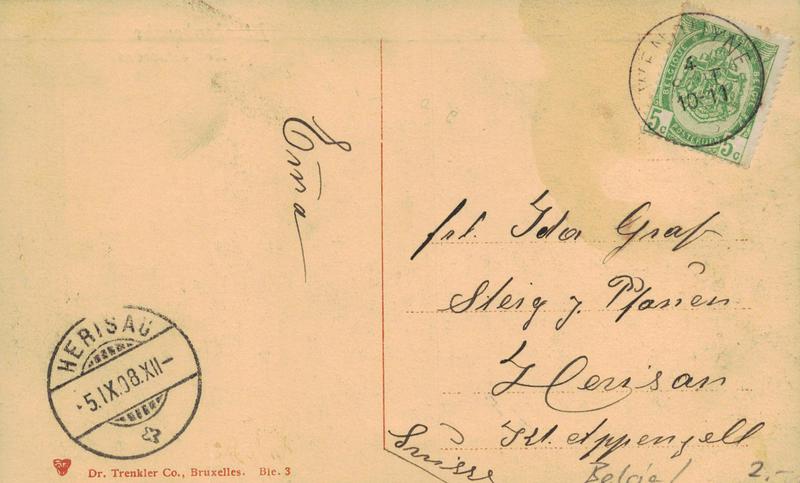 WENDUYNE
4
10-11
BELGIQUE
BELGIË
POSTERIJEN
5c
5c
Emma
frl. Ida Graf
Steig z. Pfauen
Herisau
Kt. Appenzell
Suisse
HERISAU
5.IX.08.XII-
Dr. Trenkler Co., Bruxelles. Ble. 3
Belgie/
2.-